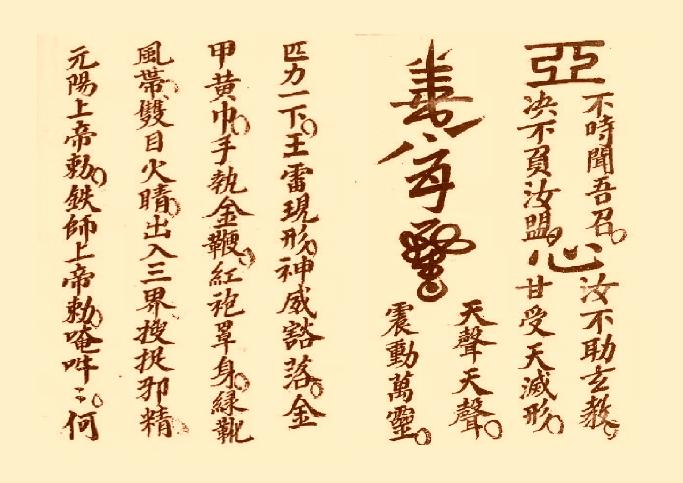 亞
不時聞吾召。
決不負汝盟。
心
汝不助玄教。
甘受天滅形。
天聲天聲。
震動萬靈。
匹力一下。王雷現形。神威豁落。金
甲黃巾。手執金鞭。紅袍罩身。綠靴
風帶。雙目火睛。出入三界搜捉邪精
元陽上帝勅。鉄師上帝勅。唵吽〻。何